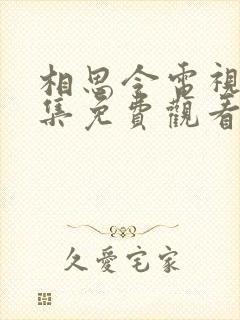 相思令電視
集免費觀看
久愛宅家